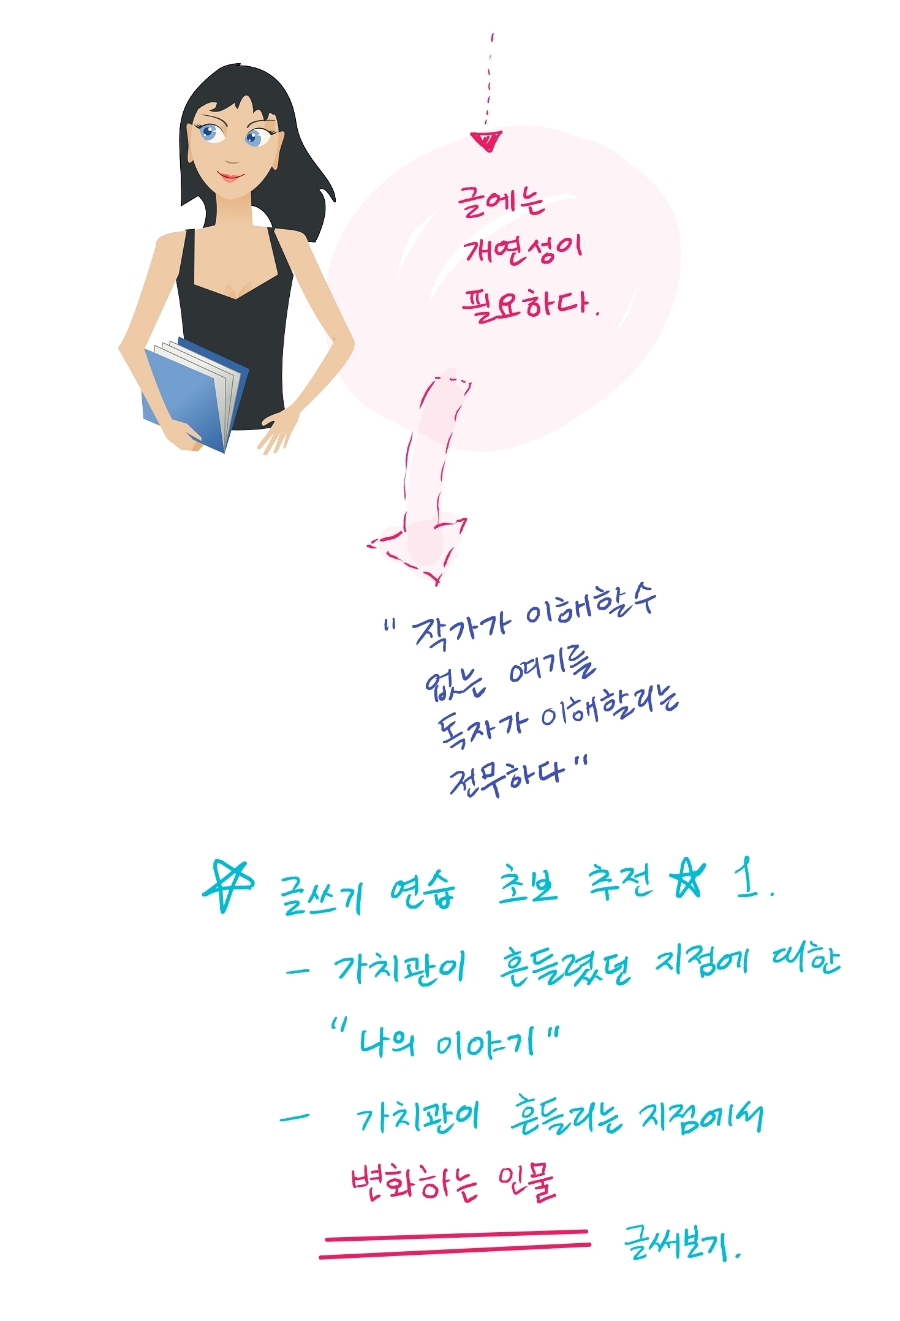 글에는
개연성이
필요하다.
"작가가 이해할수
없는 여기를
독자가 이해할리는
전무하다"
☆ 글쓰기 연습 초보 추전☆ 1.
- 가치관이 흔들렸던 지점에 대한
"나의 이야기"
- 가치관이 흔들리는 지점에서
변화하는 인물
글써보기.